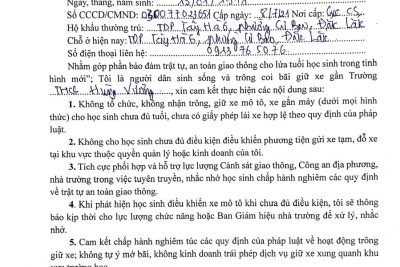 Ngày, tháng, năm sinh:
Số CCCD/CMND: Cấp ngày: 8/7/2021 Nơi cấp: Cục CS
Hộ khẩu thường trú: TDP Tây Hà 6, phường Cư Bao, Đắk Lắk
Chỗ ở hiện nay: TDP Tây Hà 6, phường Cư Bao, Đắk Lắk
Số điện thoại liên hệ:
Nhằm góp phần bảo đảm trật tự, an toàn giao thông cho lứa tuổi học sinh trong tình
hình mới”; Tôi là người dân sinh sống và trông coi bãi giữ xe gần Trường
THCS Hùng Vương, xin cam kết thực hiện các nội dung sau:
1. Không tổ chức, không nhận trông, giữ xe mô tô, xe gắn máy (dưới mọi hình
thức) cho học sinh chưa đủ tuổi, chưa có giấy phép lái xe hợp lệ theo quy định của pháp
luật.
2. Không cho học sinh chưa đủ điều kiện điều khiển phương tiện gửi xe tạm, đỗ xe
tại khu vực thuộc quyền quản lý hoặc kinh doanh của tôi.
3. Tích cực phối hợp và hỗ trợ lực lượng Cảnh sát giao thông, Công an địa phương,
nhà trường trong việc tuyên truyền, nhắc nhở học sinh chấp hành nghiêm các quy định
về trật tự an toàn giao thông.
4. Khi phát hiện học sinh điều khiển xe mô tô khi chưa đủ điều kiện, tôi sẽ thông
báo kịp thời cho lực lượng chức năng hoặc Ban Giám hiệu nhà trường để xử lý, nhắc
nhở.
5. Cam kết chấp hành nghiêm túc các quy định của pháp luật về hoạt động trông
giữ xe; không tự ý mở bãi, không kinh doanh trái phép dịch vụ giữ xe xung quanh khu